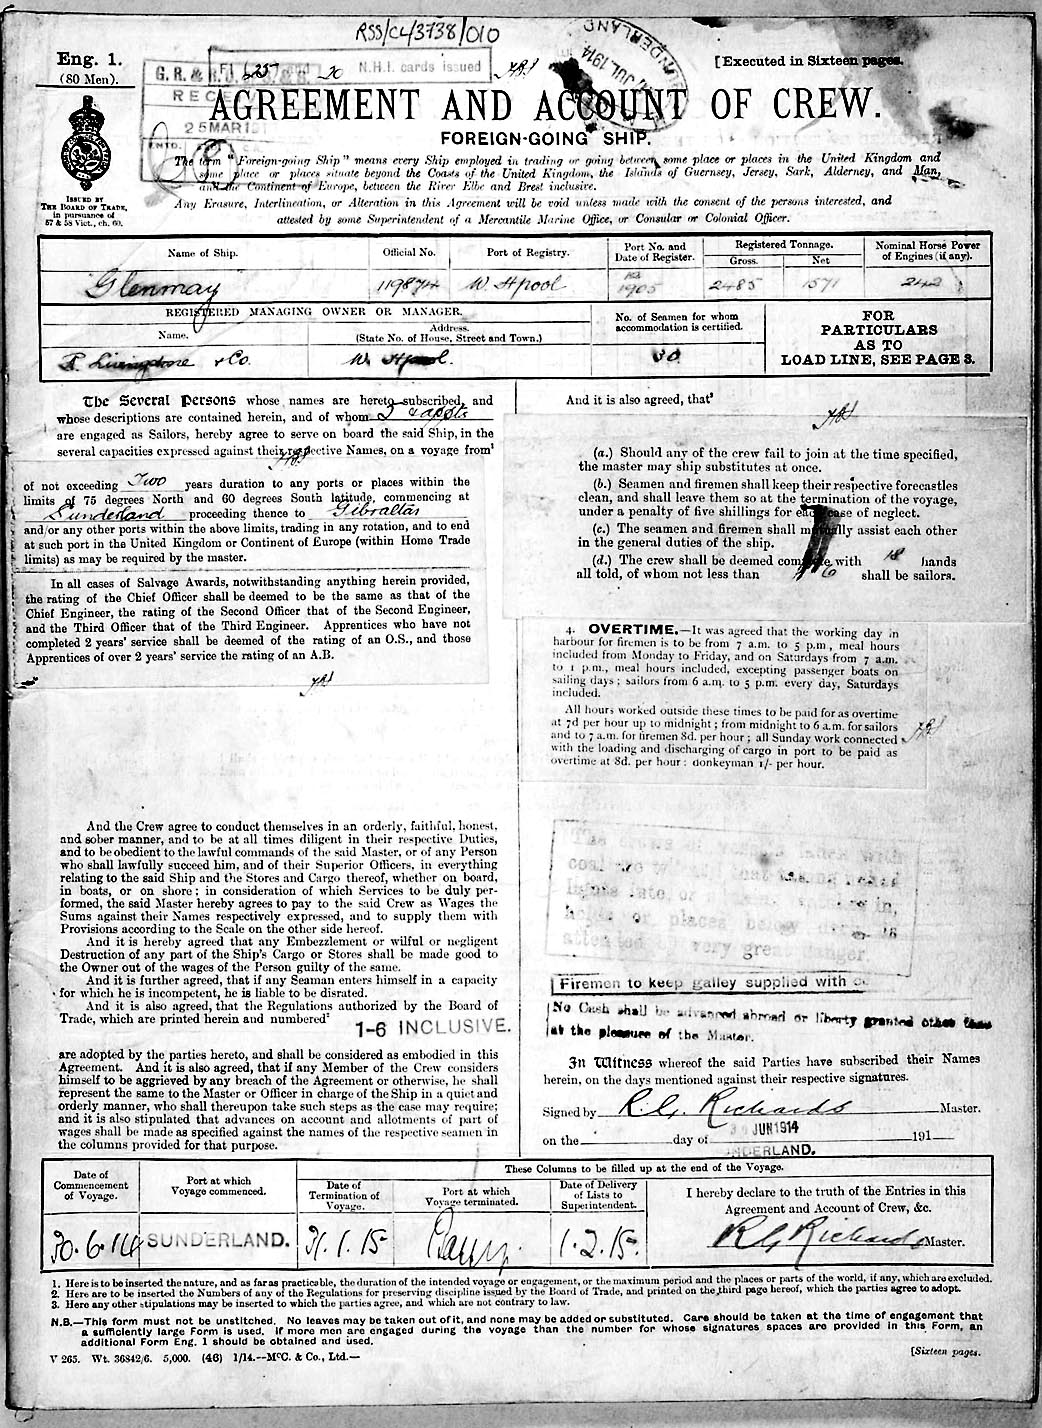 RSS/CL/3738/010
Eng. 1.
(80 Men).
G. R. &
N.H.I. cards issued
25 MAR 191
SUNDERLAND
JUL 1914
[Executed in Sixteen pages.
AGREEMENT AND ACCOUNT OF CREW.
FOREIGN-GOING SHIP.
The term "Foreign-going Ship" means every Ship employed in trading or going between some place or places in the United Kingdom and
some place or places situate beyond the Coasts of the United Kingdom, the Islands of Guernsey, Jersey, Sark, Alderney, and Man,
and the Continent of Europe, between the River Elbe and Brest inclusive.
Any Erasure, Interlineation, or Alteration in this Agreement will be void unless made with the consent of the persons interested, and
attested by some Superintendent of a Mercantile Marine Office, or Consular or Colonial Officer.
ISSUED BY
THE BOARD OF TRADE,
in pursuance of
57 & 58 Vict., ch. 60.
Name of Ship. Official No. Port of Registry. Port No. and Date of Register. Registered Tonnage. Gross. Net Nominal Horse Power of Engines (if any).
"Glenmay" 119874 W Hpool 1905 2485 1571 242
REGISTERED MANAGING OWNER OR MANAGER.
Name. Address.
(State No. of House, Street and Town.)
No. of Seamen for whom accommodation is certified.
& Co. W. Hpool. 30
FOR
PARTICULARS
AS TO
LOAD LINE, SEE PAGE 3.
The Several Persons whose names are hereto subscribed, and
whose descriptions are contained herein, and of whom 2 appts
are engaged as Sailors, hereby agree to serve on board the said Ship, in the
several capacities expressed against their respective Names, on a voyage from¹
of not exceeding Two years duration to any ports or places within the
limits of 75 degrees North and 60 degrees South latitude, commencing at
Sunderland proceeding thence to Gibraltar
and/or any other ports within the above limits, trading in any rotation, and to end
at such port in the United Kingdom or Continent of Europe (within Home Trade
limits) as may be required by the master.
In all cases of Salvage Awards, notwithstanding anything herein provided,
the rating of the Chief Officer shall be deemed to be the same as that of the
Chief Engineer, the rating of the Second Officer that of the Second Engineer,
and the Third Officer that of the Third Engineer. Apprentices who have not
completed 2 years' service shall be deemed of the rating of an O.S., and those
Apprentices of over 2 years' service the rating of an A.B.
And the Crew agree to conduct themselves in an orderly, faithful, honest,
and sober manner, and to be at all times diligent in their respective Duties,
and to be obedient to the lawful commands of the said Master, or of any Person
who shall lawfully succeed him, and of their Superior Officers, in everything
relating to the said Ship and the Stores and Cargo thereof, whether on board,
in boats, or on shore; in consideration of which Services to be duly per-
formed, the said Master hereby agrees to pay to the said Crew as Wages the
Sums against their Names respectively expressed, and to supply them with
Provisions according to the Scale on the other side hereof.
And it is hereby agreed that any Embezzlement or wilful or negligent
Destruction of any part of the Ship's Cargo or Stores shall be made good to
the Owner out of the wages of the Person guilty of the same.
And it is further agreed, that if any Seaman enters himself in a capacity
for which he is incompetent, he is liable to be disrated.
And it is also agreed, that the Regulations authorized by the Board of
Trade, which are printed herein and numbered²
1-6 INCLUSIVE.
are adopted by the parties hereto, and shall be considered as embodied in this
Agreement. And it is also agreed, that if any Member of the Crew considers
himself to be aggrieved by any breach of the Agreement or otherwise, he shall
represent the same to the Master or Officer in charge of the Ship in a quiet and
orderly manner, who shall thereupon take such steps as the case may require;
and it is also stipulated that advances on account and allotments of part of
wages shall be made as specified against the names of the respective seamen in
the columns provided for that purpose.
And it is also agreed, that³
(a.) Should any of the crew fail to join at the time specified,
the master may ship substitutes at once.
(b.) Seamen and firemen shall keep their respective forecastles
clean, and shall leave them so at the termination of the voyage,
under a penalty of five shillings for each case of neglect.
(c.) The seamen and firemen shall mutually assist each other
in the general duties of the ship.
(d.) The crew shall be deemed complete with 18 hands
all told, of whom not less than 6 shall be sailors.
4. OVERTIME.—It was agreed that the working day in
harbour for firemen is to be from 7 a.m. to 5 p.m, meal hours
included from Monday to Friday, and on Saturdays from 7 a.m.
to 1 p.m., meal hours included, excepting passenger boats on
sailing days; sailors from 6 a.m. to 5 p.m. every day, Saturdays
included.
All hours worked outside these times to be paid for as overtime
at 7d per hour up to midnight; from midnight to 6 a.m. for sailors
and to 7 a.m. for firemen 8d. per hour; all Sunday work connected
with the loading and discharging of cargo in port to be paid as
overtime at 8d. per hour: donkeyman 1/- per hour.
very great danger.
Firemen to keep galley supplied with
No Cash shall be advanced abroad or liberty granted other than
at the pleasure of the Master.
In Witness whereof the said Parties have subscribed their Names
herein, on the days mentioned against their respective signatures.
Signed by R. G. Richards Master.
on the day of 30 JUN 1914 191
SUNDERLAND.
These Columns to be filled up at the end of the Voyage.
Date of Commencement of Voyage. Port at which Voyage commenced. Date of Termination of Voyage. Port at which Voyage terminated. Date of Delivery of Lists to Superintendent.
30.6.14 SUNDERLAND. 31.1.15 Barry. 1.2.15.
I hereby declare to the truth of the Entries in this
Agreement and Account of Crew, &c.
R G Richards Master.
1. Here is to be inserted the nature, and as far as practicable, the duration of the intended voyage or engagement, or the maximum period and the places or parts of the world, if any, which are excluded.
2. Here are to be inserted the Numbers of any of the Regulations for preserving discipline issued by the Board of Trade, and printed on the third page hereof, which the parties agree to adopt.
3. Here any other stipulations may be inserted to which the parties agree, and which are not contrary to law.
N.B.—This form must not be unstitched. No leaves may be taken out of it, and none may be added or substituted. Care should be taken at the time of engagement that
a sufficiently large Form is used. If more men are engaged during the voyage than the number for whose signatures spaces are provided in this Form, an
additional Form Eng. 1 should be obtained and used.
V 265. Wt. 36842/6. 5,000. (46) 1/14.—McC. & Co., Ltd.—
[Sixteen pages.